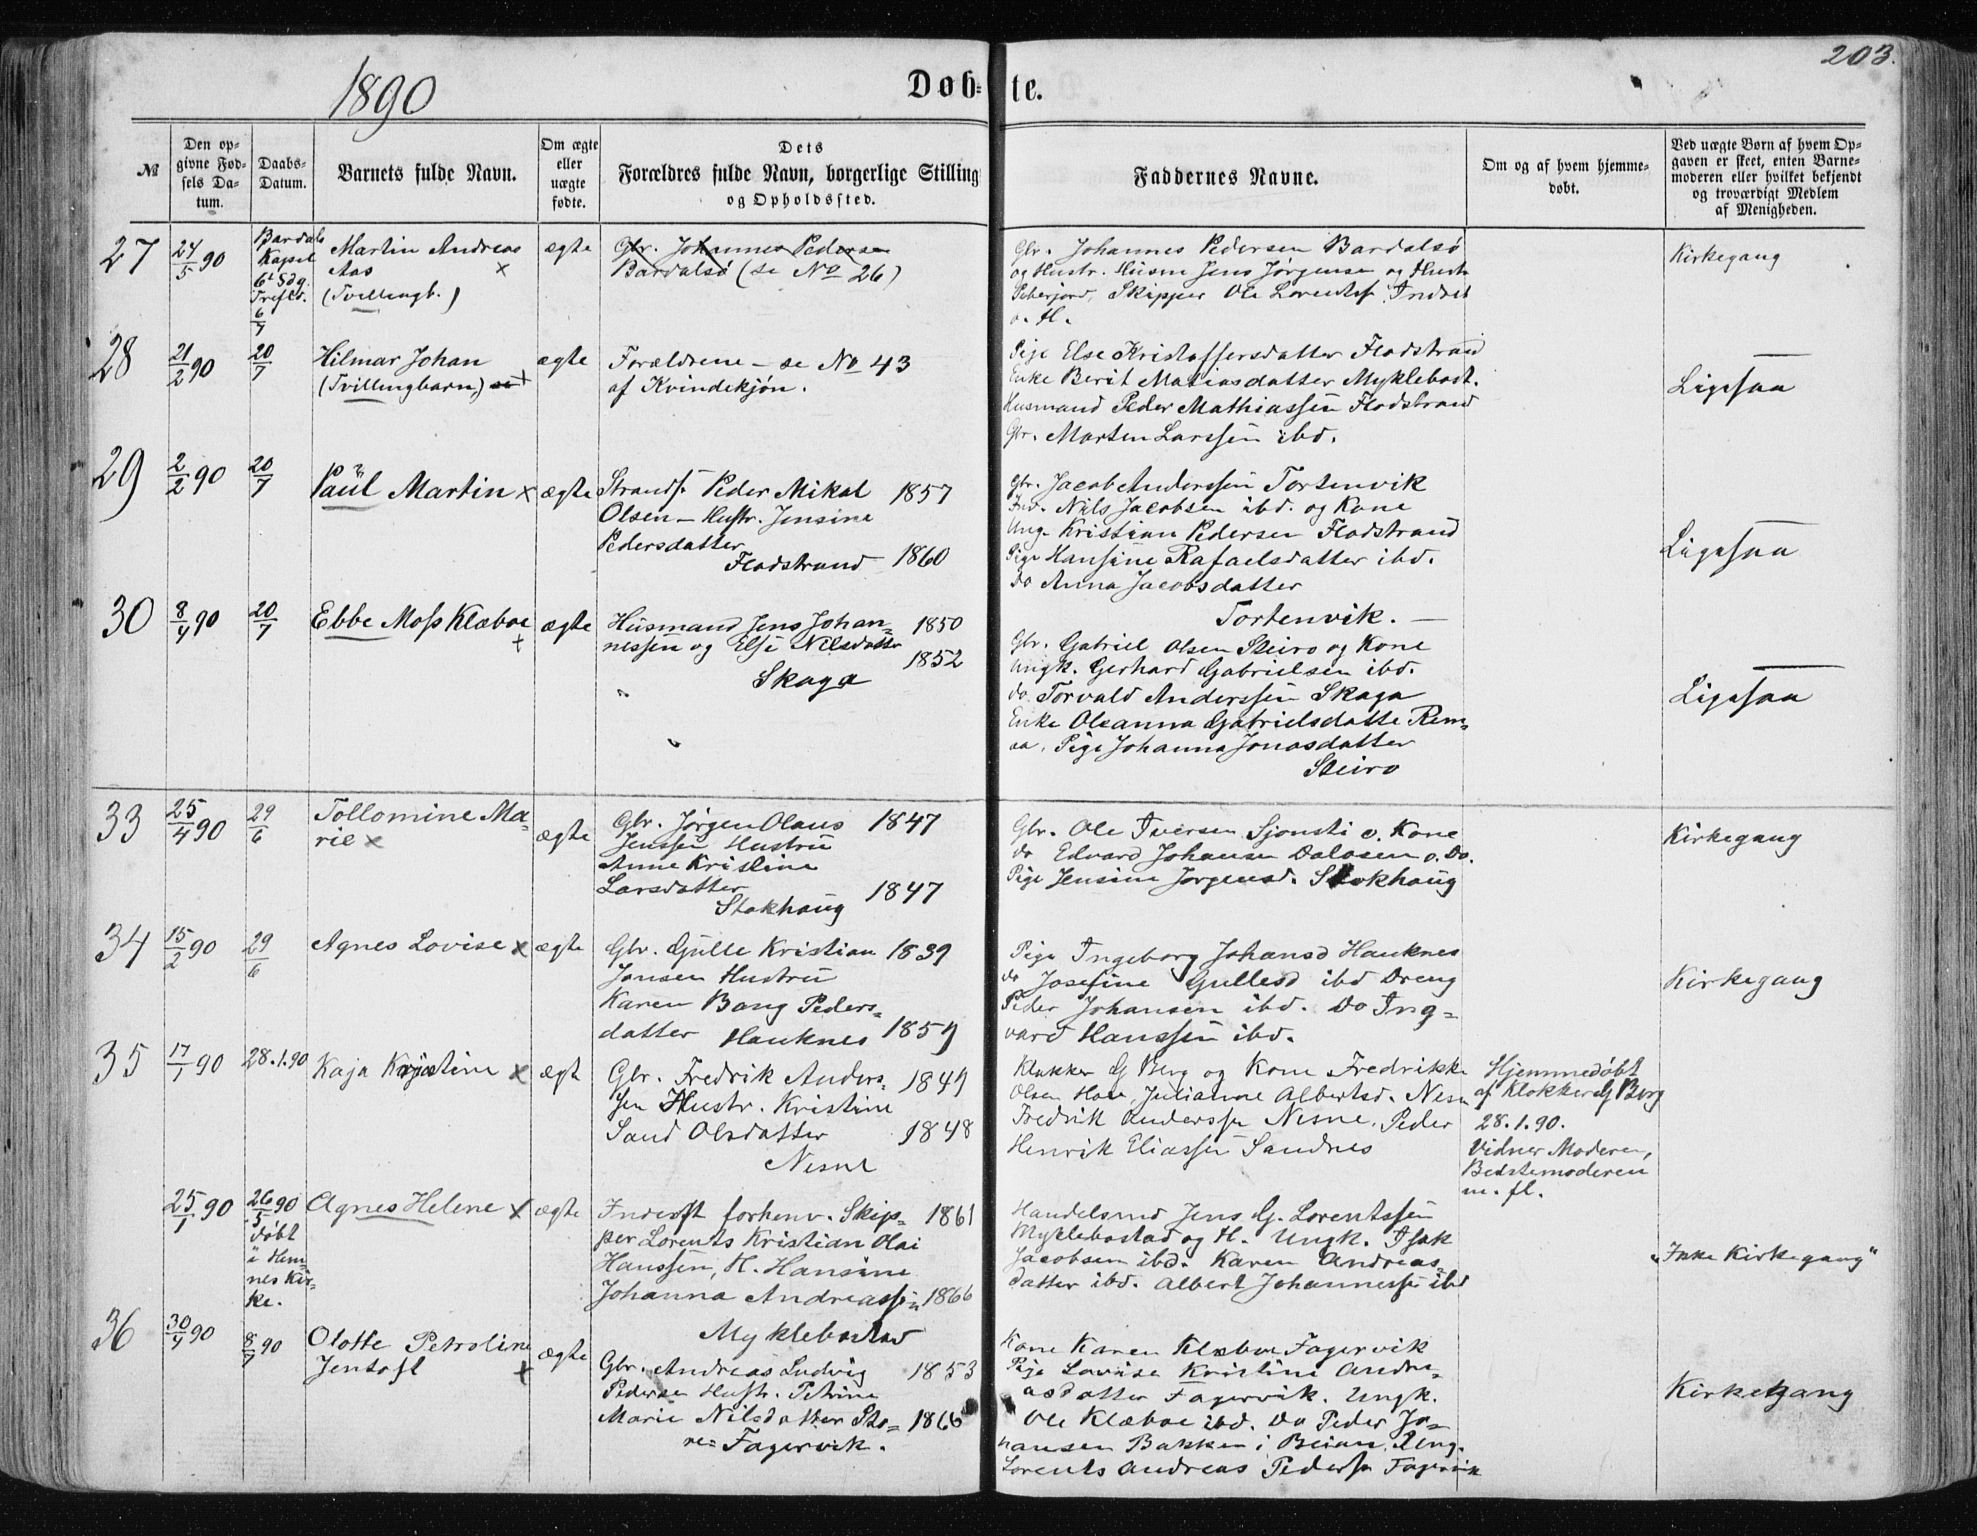 203.
1890
Døb-
te.
№
Den op-
givne Fød-
sels Da-
tum.
Daabs-
Datum.
Barnets fulde Navn.
Om ægte
eller
uægte
fødte.
Dets
Forældres fulde Navn, borgerlige Stilling
og Opholdssted.
Faddernes Navne.
Om og af hvem hjemme-
døbt.
Ved uægte Børn af hvem Op-
gaven er skeet, enten Barne-
moderen eller hvilket bekjendt
og troværdigt Medlem
af Menigheden.
27
24/5 90
Bardals
Kapel
6te Sdg.
Trefld.
6/7
Martin Andreas
Aas ×
(Tvillingb.)
ægte
Gbr. Johannes Pedersen
Bardalsø (se No 26)
Gbr. Johannes Pedersen Bardalsø
og Hustr. Husm Jens Jørgensen og Hustr
Skipper Ole Lorentss. Indset
o. H.
Kirkegang
28
21/2 90
20/7
Hilmar Johan
(Tvillingbarn)
ægte
Forældrene - se No 43
af Kvindekjøn.
Pige Else Kristoffersdatter Flodstrand
Enke Berit Matiasdatter Myklebost.
Husmand Peder Mathiassen Flodstrand
Gbr. Morten Larssen ibd.
Ligesaa
29
2/2 90
20/7
Paül Martin ×
ægte
Strands. Peder Mikal 1857
Olsen - Hustr. Jensine
Pedersdatter
Flodstrand 1860
Gbr. Jacob Anderssen Tortenvik
Ind. Nils Jacobsen ibd. og Kone
Ung. Kristian Pedersen Flodstrand
Pige Hansine Rafaelsdatter ibd.
do Anna Jacobsdatter
Tortenvik. -
Ligesaa
30
8/4 90
20/7
Ebbe Moss Klæboe
+
ægte
Husmand Jens Johan- 1850
nessen og Else Nilsdatter
1852
Skaga
Gbr. Gabriel Olsen Steiro og Kone
Ungk. Gerhard Gabrielsen ibd.
do. Torvald Anderssen Skaga
Enke Oleanna Gabrielsdatte Rem-
aa. Pige Johanna Jonasdatter
Steiro
Ligesaa
33
25/4 90
29/6
Tollomine Ma-
rie ×
ægte
Gbr. Jørgen Olaus 1847
Jenssen Hustru
Anne Kristine
Larsdatter 1847
Stokhaug
Gbr. Ole Iversen Sjonsti o. Kone
do Edvard Johansen Dalosen o. Do.
Pige Jensine Jørgensd. Stokhaug
Kirkegang
34
15/2 90
29/6
Agnes Lovise ×
ægte
Gbr. Gulle Kristian 1839
Jonsen Hustru
Karen Bang Peders-
datter Hauknes 1859
Pige Ingeborg Johansd Hauknes
do Josefine Gullesd ibd Dreng
Peder Johansen ibd. Do Ing-
vard Hanssen ibd.
Kirkegang
35
17/1 90
28.1.90
Kaja Kristine ×
ægt
Gbr. Fredrik Anders- 1849
sen Hustr. Kristine
Sand Olsdatter 1848
Nesne
Klokker G Berg og Kone Fredrikke
Olsen Julianne Albertsd. Nesn
Fredrik Anderssen Nesne. Peder
Henrik Eliassen Sandnes
Hjemmedøbt
af Klokker G Berg
28.1.90.
Vidner Moderen,
Bedstemoderen
m. fl.
25/1 90
26/5 90
døbt
i Hem-
nes Kir-
ke.
Agnes Helene ×
ægte
Inderst forhenv. Skip- 1861
per Lorents Kristian Olai
Hanssen, H. Hansine
Johanna Andreassen 1866
Myklebostad
Handelsmd Jens G. Lorentssen
Myklebostad og H. Ungk. Isak
Jacobsen ibd. Karen Andreas-
datter ibd. Albert Johannessen ibd
„Ikke Kirkegang"
36
30/4 90
8/7 90
Olotte Petroline
Jentoft ×
ægte
Gbr. Andreas Ludvig 1853
Pedersen Hustr. Petrine
Marie Nilsdatter Sto- 1866
re- Fagervik.
Kone Karen Klæboe Fagervik
Pige Lovise Kristine Andre-
asdatter Fagervik. Ungk.
Ole Klæboe ibd. Do Peder Jo-
hansen Bakken i Beian. Ung.
Lorents Andreas Peders. Fagervik
Kirkegang